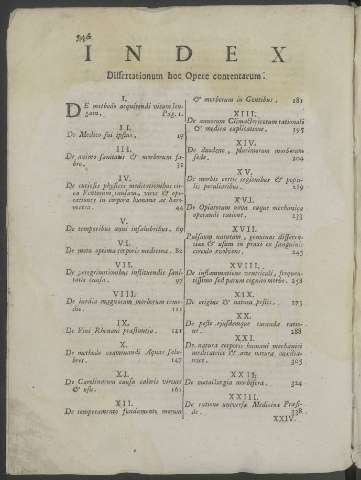 INDEX
Dissertationum hoc Opere contentarum.
I.
DE methodo acquirendi vitam lon-
gam. Pag. 1.
II.
De Medico sui ipsius. 19
III.
De animo sanitatis & morborum fa-
bro. 32
IV.
De
ca Ventorum, causas, vires & ope-
rationes in corpora humana ac baro-
metra. 44
V.
De temporibus anni insalubribus. 69
VI.
De motu optima corporis medicina. 82
VII.
De peregrinationibus instituendis sani-
tatis causa. 97
VIII.
De inedia magnorum morborum reme-
dio. 111
IX.
De Vini Rhenani praestantia. 121
X.
De methodo examinandi Aquas salu-
bres. 147
XI.
De Carolinarum causa caloris virtute
& usu. 161
XII.
De temperamento fundamento morum
& morborum in Gentibus. 181
XIII.
De annorum Climactericorum rationali
& medica explicatione. 195
XIV.
De duodeno, plurimorum morborum
sede. 204
XV.
De morbis certis regionibus & popu-
lis peculiaribus. 219
XVI.
De Opiatorum nova eaque mechanica
operandi ratione. 233
XVII.
Pulsuum natura, genuina differen-
tia & usu in praxi ex sanguinis
circulo evolvens. 245
XVIII.
De inflammatione ventriculi, frequen-
tissimo sed parum cognito morbo. 258
XIX.
De origine & natura pestis. 273
XX.
De peste ejusdemque curanda ratio-
ne. 288
XXI.
De natura corporis humani mechanica
medicatrice & arte naturae auxilia-
trice. 305
XXII.
De metallurgia morbifera. 324
XXIII.
De ratione universae Medicinae Praesi-
de. 338
XXIV.